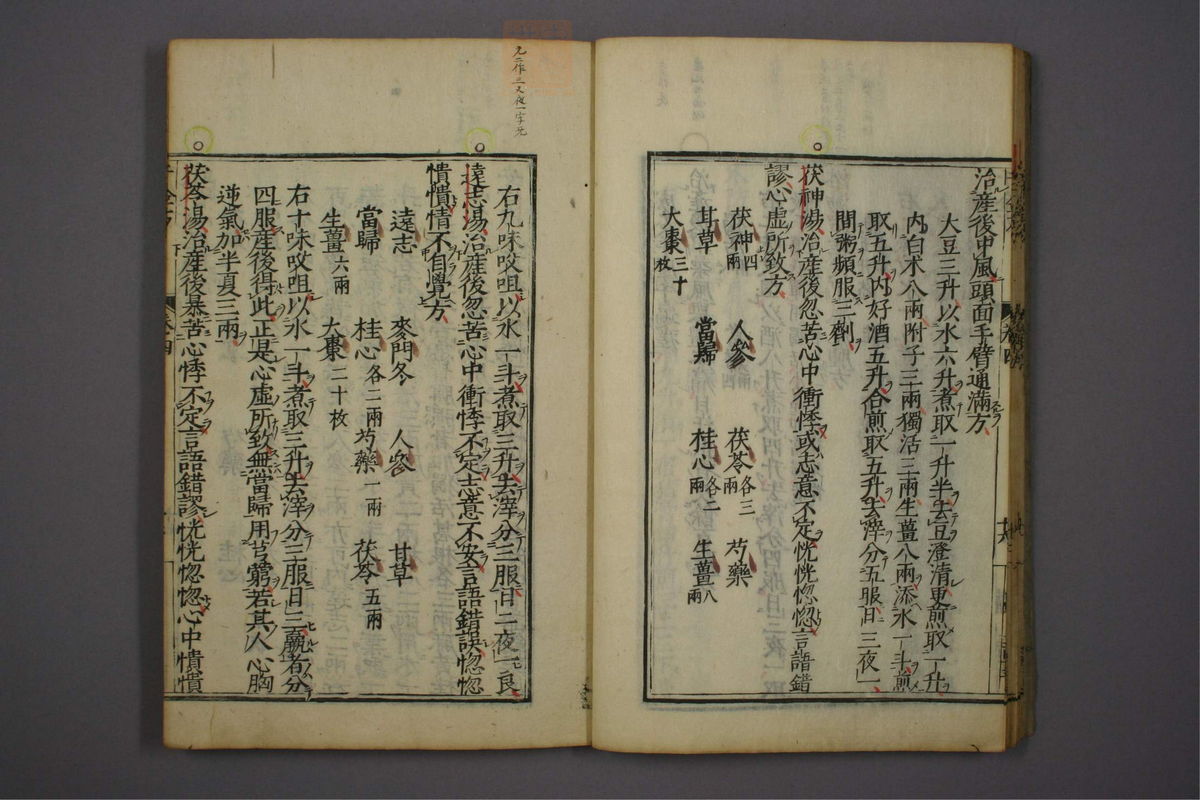 治産後中風頭面手臂通滿方
大豆三升以水六升煮取一升半去豆澄清更煎取一升
内白术八兩附子三兩獨活三兩生薑八兩添水一斗煎
取五升内好酒五升合煎取五升去滓分五服日三夜二
間粥頻服三劑
茯神湯治産後忽苦心中衝悸或志意不定恍恍惚惚言語錯
謬心虛所致方
茯神四兩 人參 茯苓各三兩 芍藥
甘草 當歸 桂心各二兩 生薑八兩
大棗三十枚
右九味㕮咀以水一斗煮取三升去滓分三服日二夜一良
遠志湯治産後忽苦心中衝悸不定志意不安言語錯誤惚惚
憒憒情不自覺方
遠志 麥門冬 人參 甘草
當歸 桂心各二兩 芍藥一兩 茯苓五兩
生薑六兩 大棗二十枚
右十味㕮咀以水一斗煮取三升去滓分三服日三羸者分
四服産後得此正是心虛所致無當歸用芎藭若其人心胸
逆氣加半夏三兩
茯苓湯治産後暴苦心悸不定言語錯謬恍恍惚惚心中憒憒